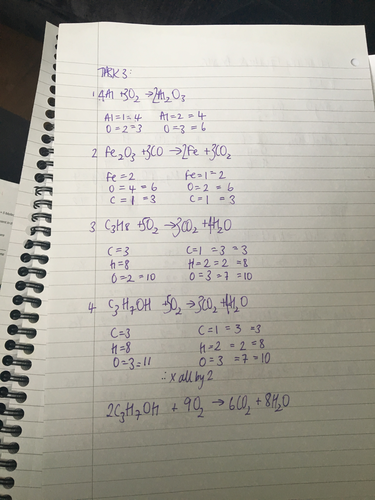 TASK 3:
1 4Al + 3O2 → 2Al2O3
Al=1=4 Al=2=4
O=2=3 O=3=6
2 Fe2O3 + 3CO → 2Fe + 3CO2
Fe=2 Fe=1=2
O=4=6 O=2=6
C=1=3 C=1=3
3 C3H8 + 5O2 → 3CO2 + 4H2O
C=3 C=1=3=3
H=8 H=2=2=8
O=2=10 O=3=7=10
4 C3H7OH + 5O2 → 3CO2 + 4H2O
C=3 C=1=3=3
H=8 H=2=2=8
O=3=11 O=3=7=10
∴ x all by 2
2C3H7OH + 9O2 → 6CO2 + 8H2O